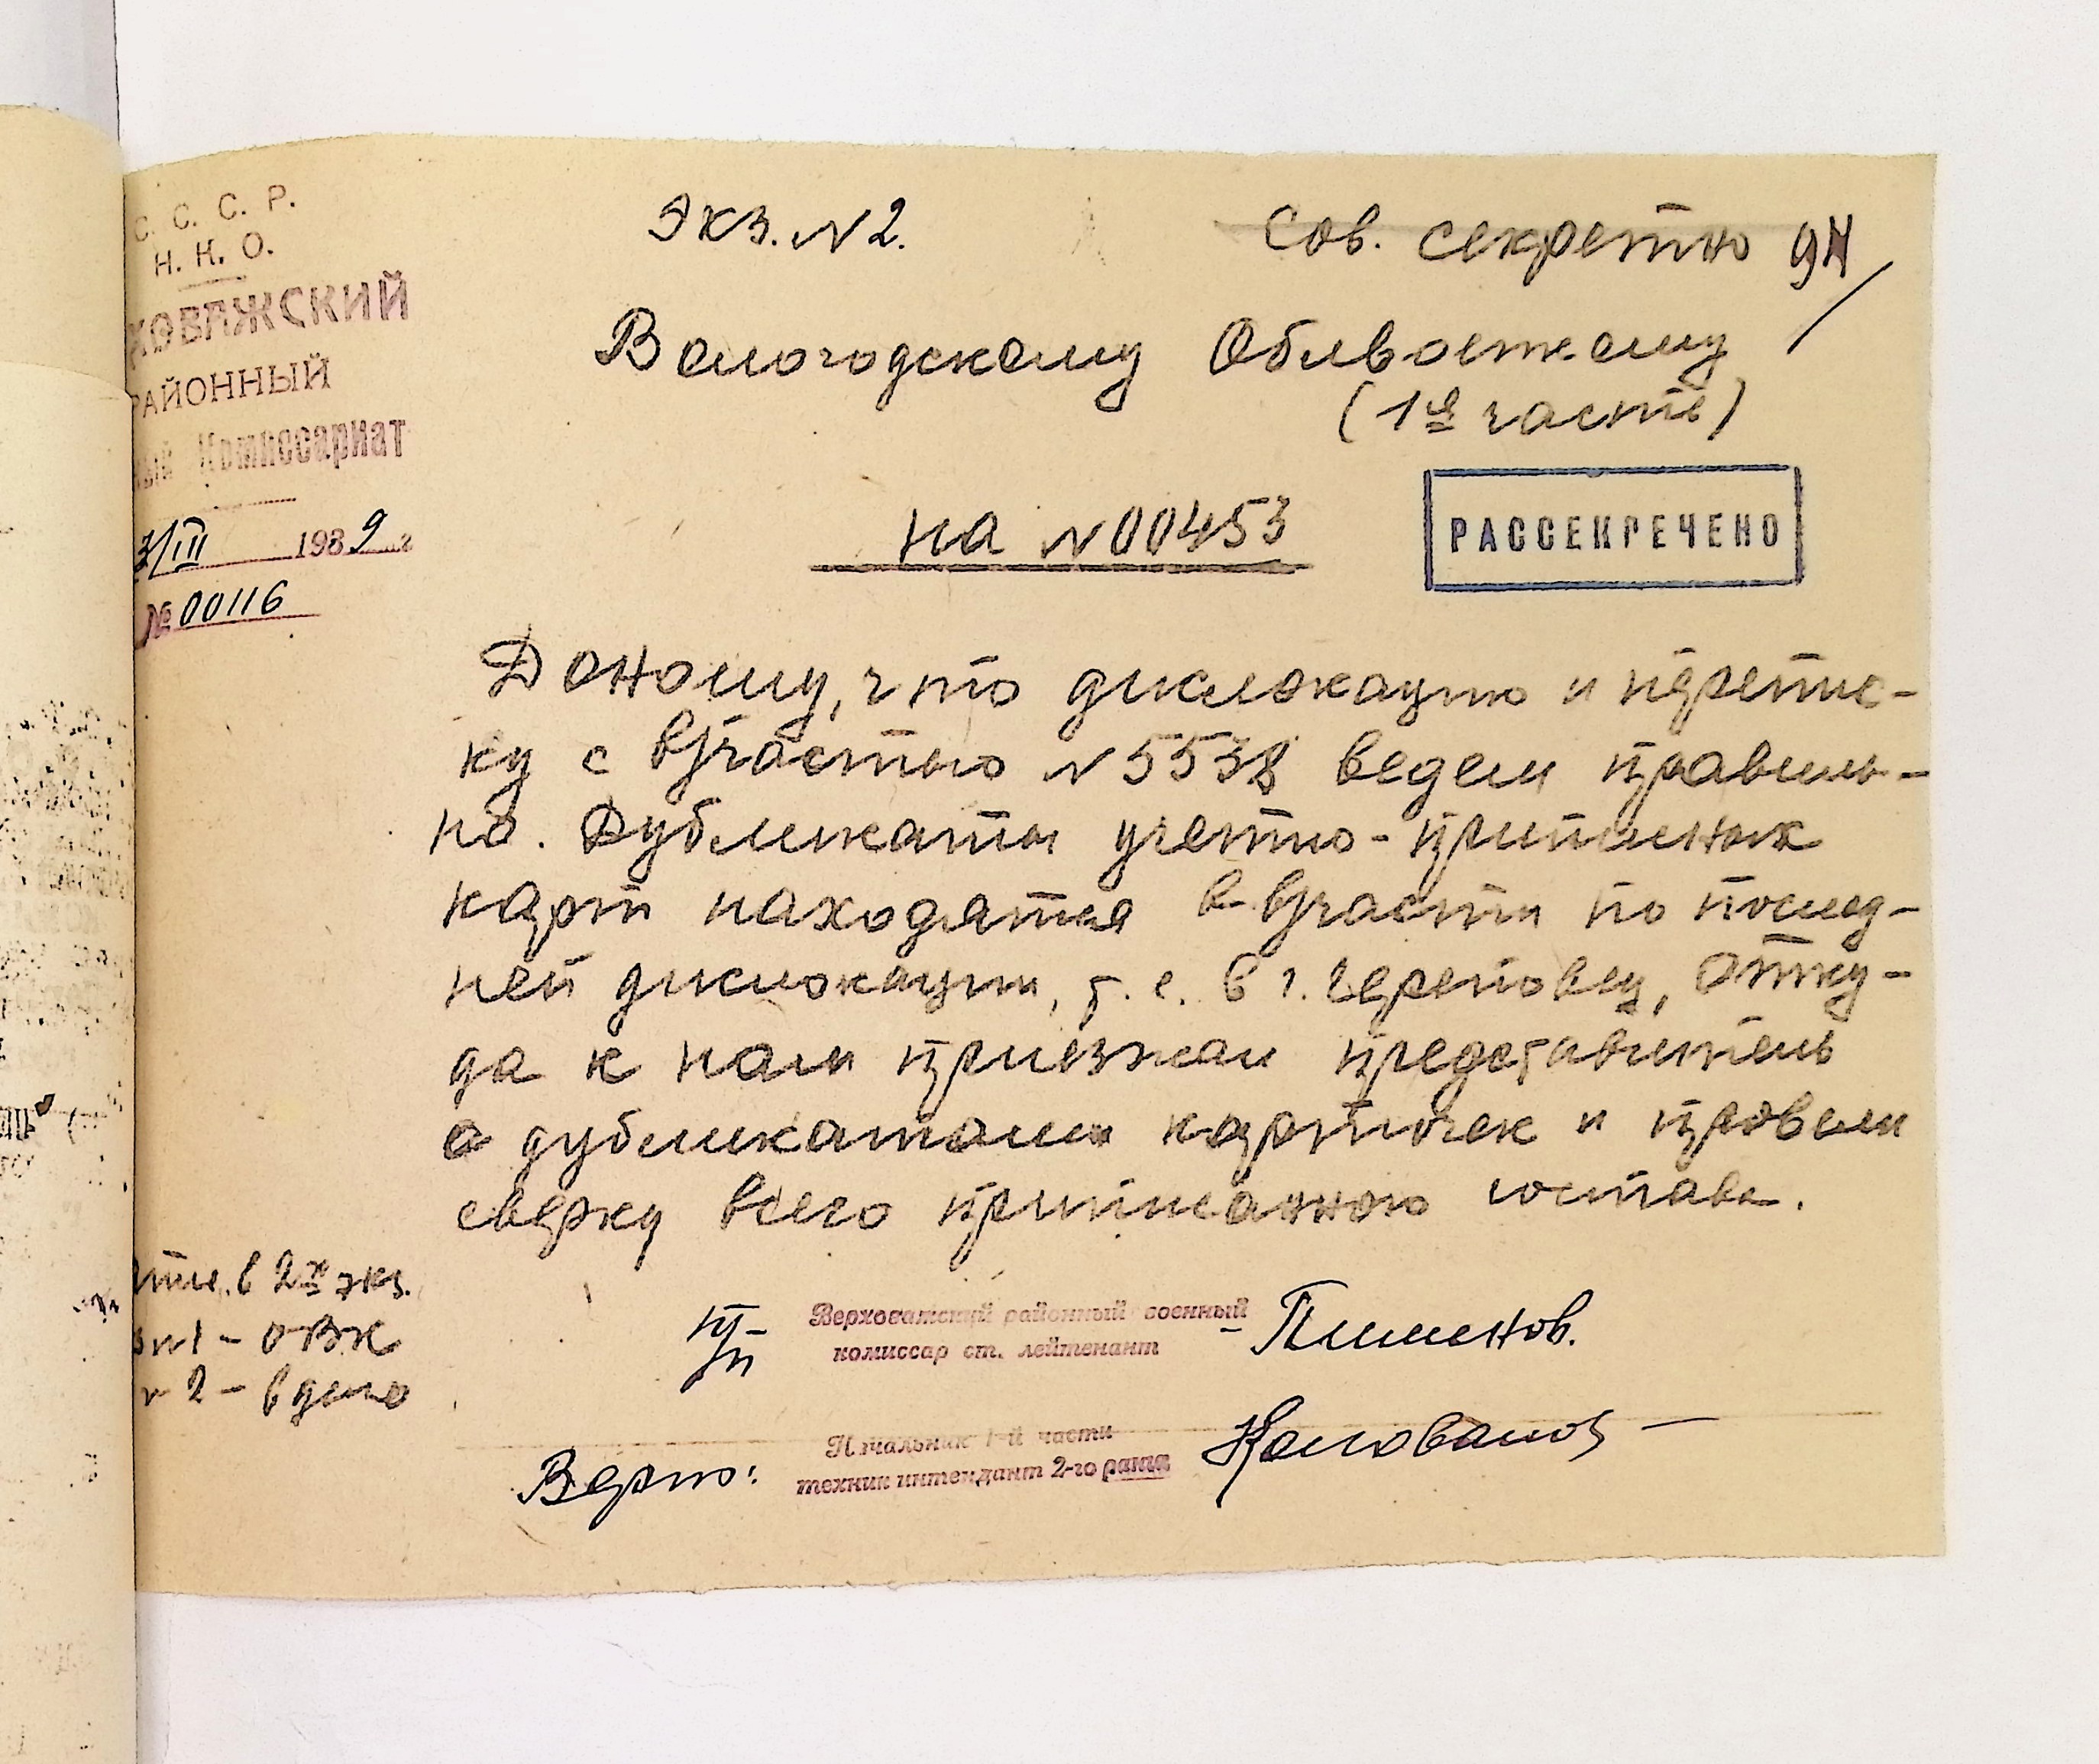 С. С. С. Р.
Н. К. О.
ХОВАЖСКИЙ
РАЙОННЫЙ
ный Комиссариат
3/III 1939 г
№ 00116
Экз. N 2.
Сов. секретно 94
Вологодскому Облвоенкому
(1ая часть)
на N 00453
РАССЕКРЕЧЕНО
Доношу, что дислокацию и перепис-
ку с в/частью N 5538 ведем правиль-
но. Дубликаты учетно-приписных
карт находятся в в/части по послед-
ней дислокации, т. е. в г. Череповец, отку-
да к нам приезжал представитель
с дубликатами карточек и провели
сверку всего приписанного состава.
в 2х экз.
N1 - ОВК
N 2 - в дело
п/п Верховажский районный военный
комиссар ст. лейтенант - Пименов.
Верно: Начальник 1-й части
техник интендант 2-го ранга